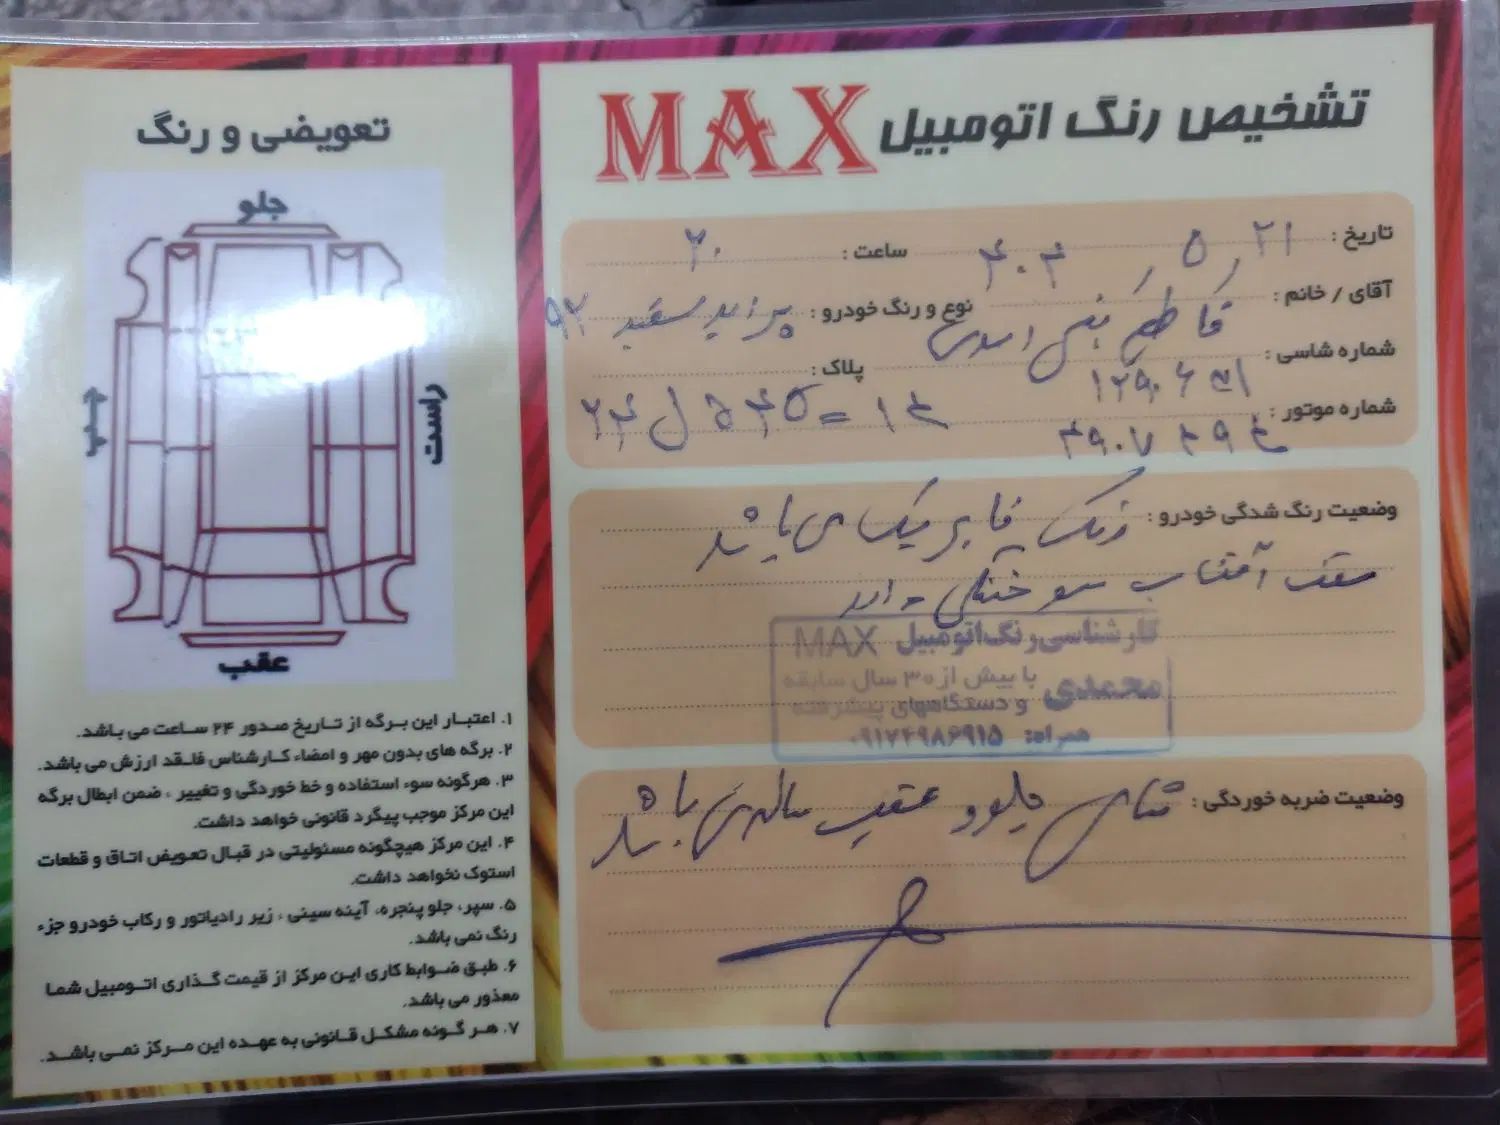 تشخیص رنگ اتومبیل MAX
تاریخ : ۲۱ / ۵ / ۴۰۴ ساعت : ۲۰
آقای / خانم : فاطمه نوع و رنگ خودرو : پراید سفید ۹۲
شماره شاسی : پلاک :
شماره موتور :
وضعیت رنگ شدگی خودرو : رنگ فابریک می باشد
سقف آفتاب سوختگی دارد
کارشناسی رنگ اتومبیل MAX
محمدی با بیش از ۳۰ سال سابقه
و دستگاههای پیشرفته
همراه: ۰۹۱۷۴۹۸۶۹۱۵
وضعیت ضربه خوردگی : شاسی جلو و عقب سالم می باشد
تعویضی و رنگ
جلو
چپ
راست
عقب
۱. اعتبار این برگه از تاریخ صدور ۲۴ ساعت می باشد.
۲. برگه های بدون مهر و امضاء کارشناس فاقد ارزش می باشد.
۳. هرگونه سوء استفاده و خط خوردگی و تغییر ، ضمن ابطال برگه
این مرکز موجب پیگرد قانونی خواهد داشت.
۴. این مرکز هیچگونه مسئولیتی در قبال تعویض اتاق و قطعات
استوک نخواهد داشت.
۵. سپر، جلو پنجره، آینه سینی ، زیر رادیاتور و رکاب خودرو جزء
رنگ نمی باشد.
۶. طبق ضوابط کاری این مرکز از قیمت گذاری اتومبیل شما
معذور می باشد.
۷. هر گونه مشکل قانونی به عهده این مرکز نمی باشد.